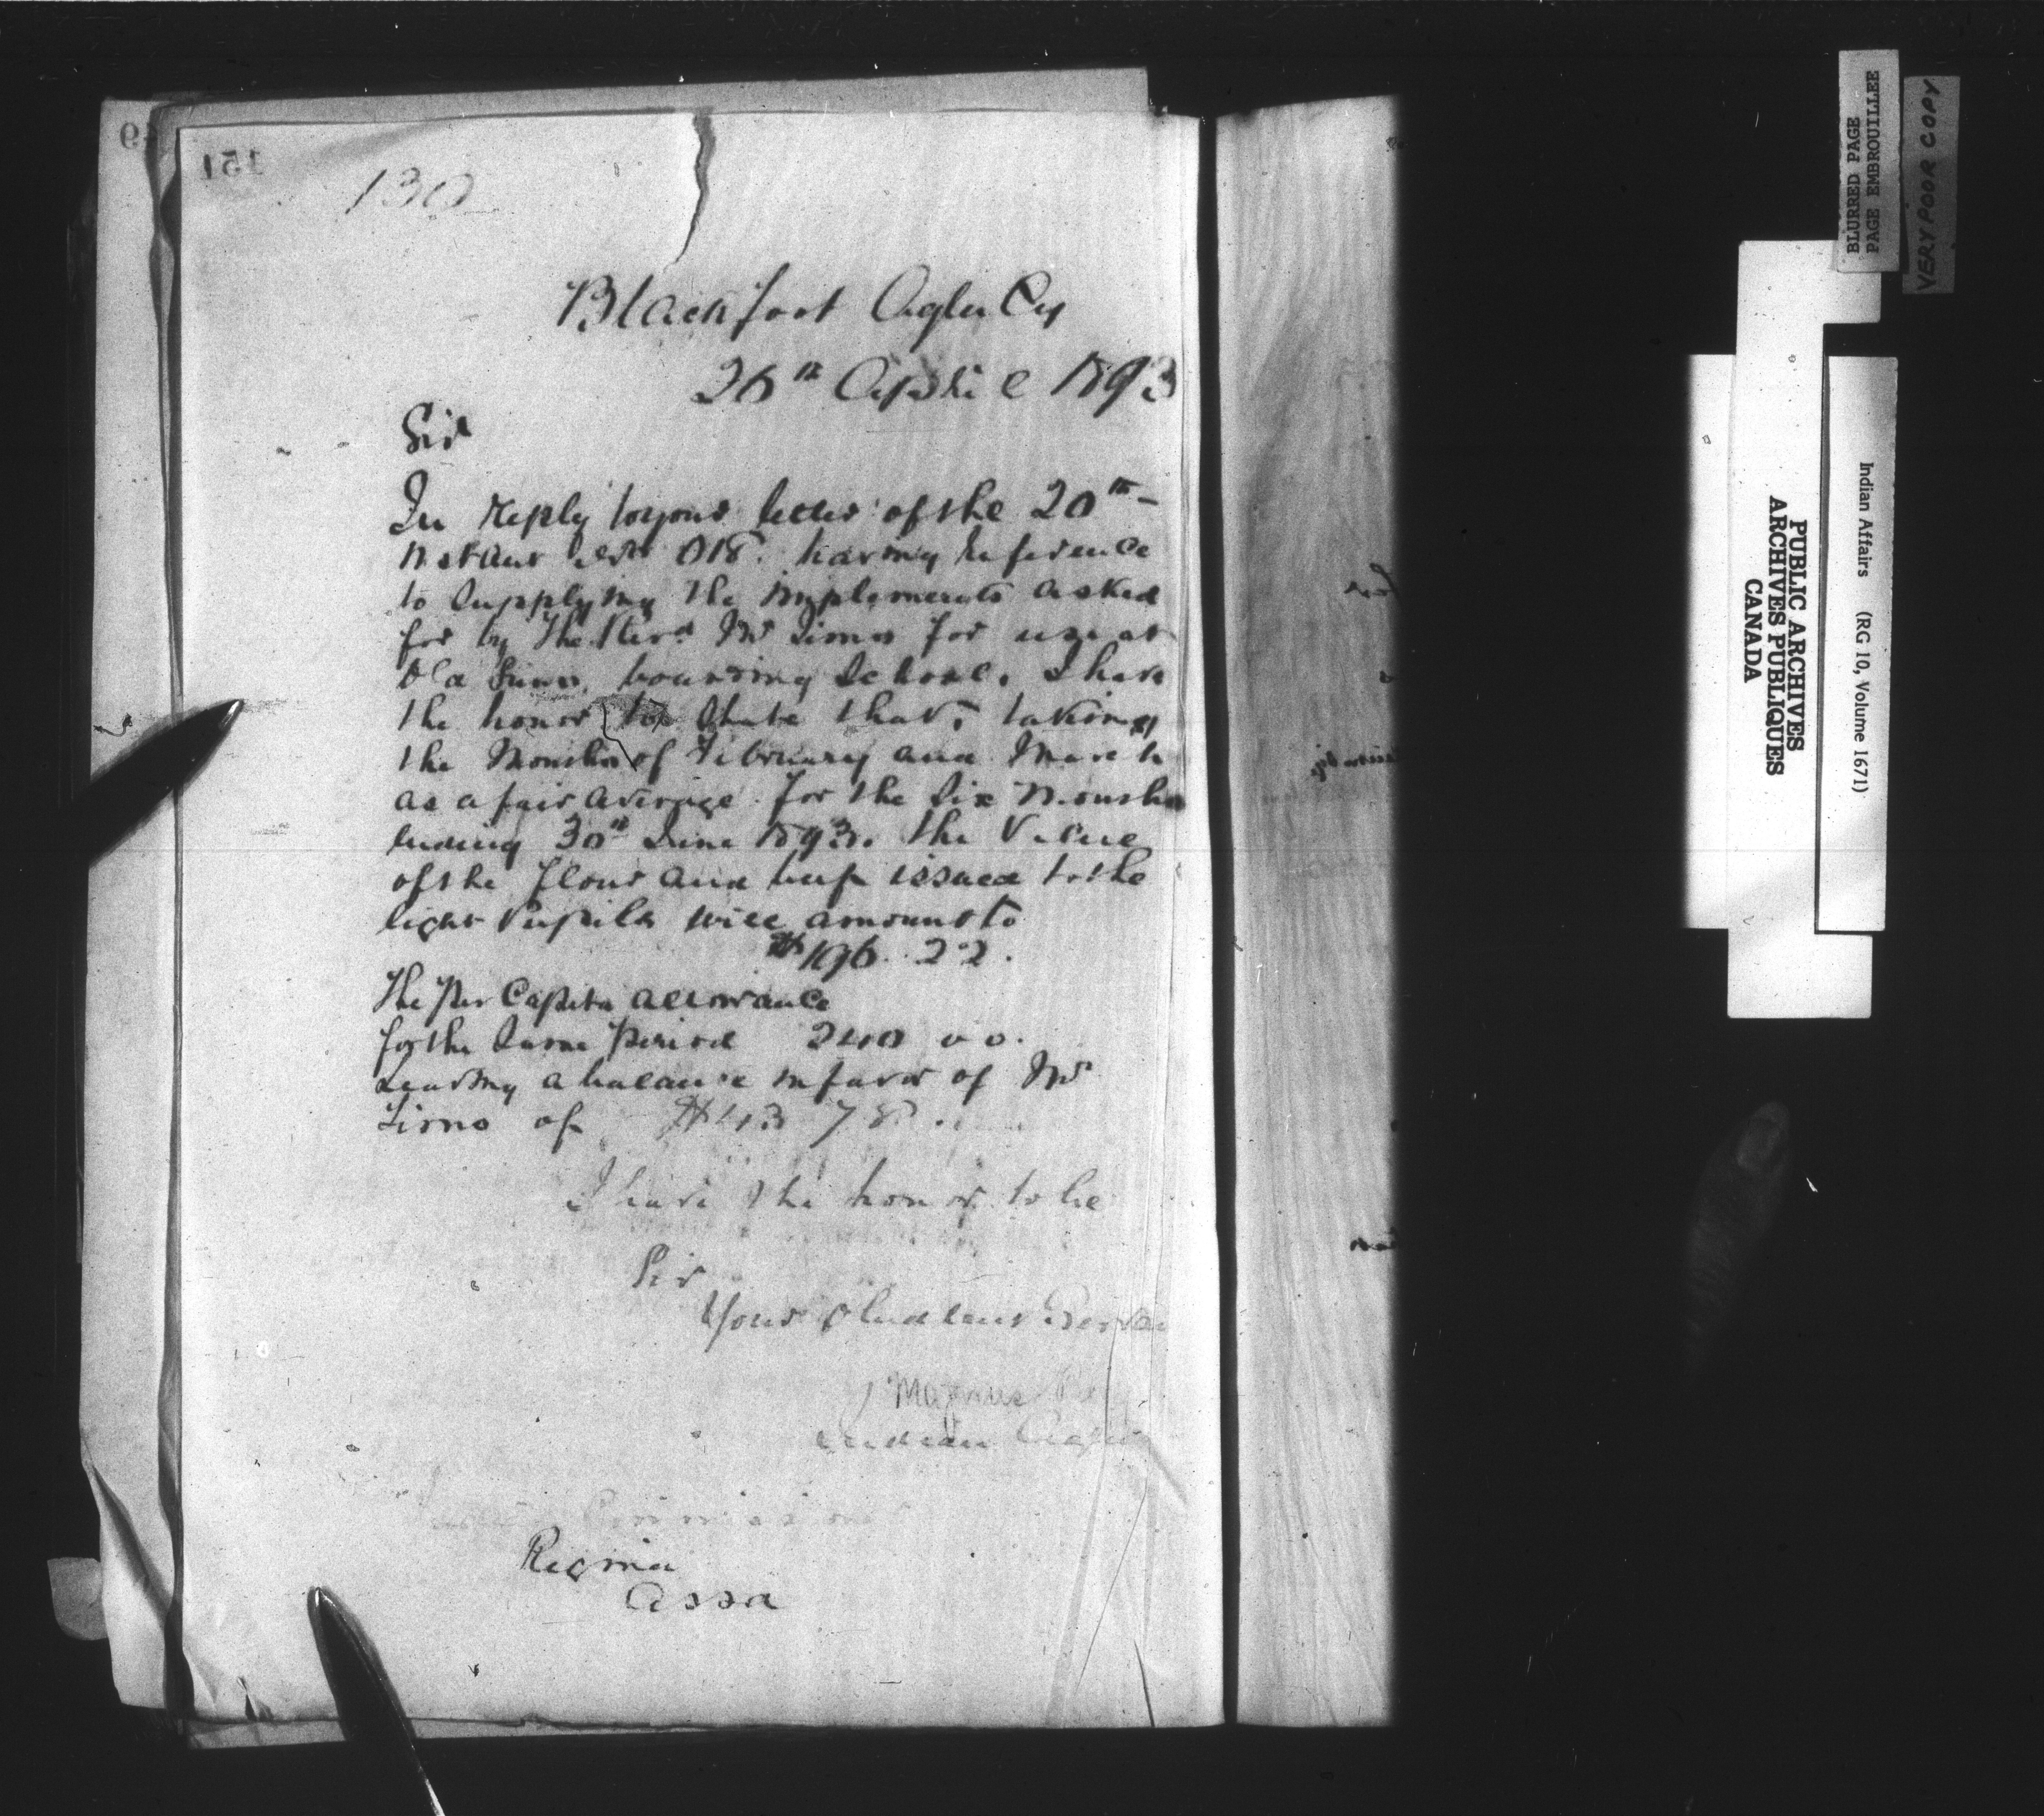 130
Blackfoot Agency
26th April 1893
Sir
In reply to your letter of the 20th
Instant No 018. having reference
to supplying the implements asked
for by the Revd Mr Tims for use at
Old Suns boarding School. I have
the honor to State that, taking
the Months of February and March
as a fair average for the Six Months
ending 30th June 1893. the Value
of the flour and beef issued to the
eight Pupils will amount to
$196.22.
The Per Capita allowance
for the Same Period 240 00.
Leaving a balance in favor of Mr
Tims of $43 78.
I have the honor to be
Sir
Your Obedient Servan
Magnus
Indian Agent
Commissioner
Regina
Assa
151
BLURRED PAGE
PAGE EMBROUILLEE
VERY POOR COPY
PUBLIC ARCHIVES
ARCHIVES PUBLIQUES
CANADA
Indian Affairs (RG 10, Volume 1671)